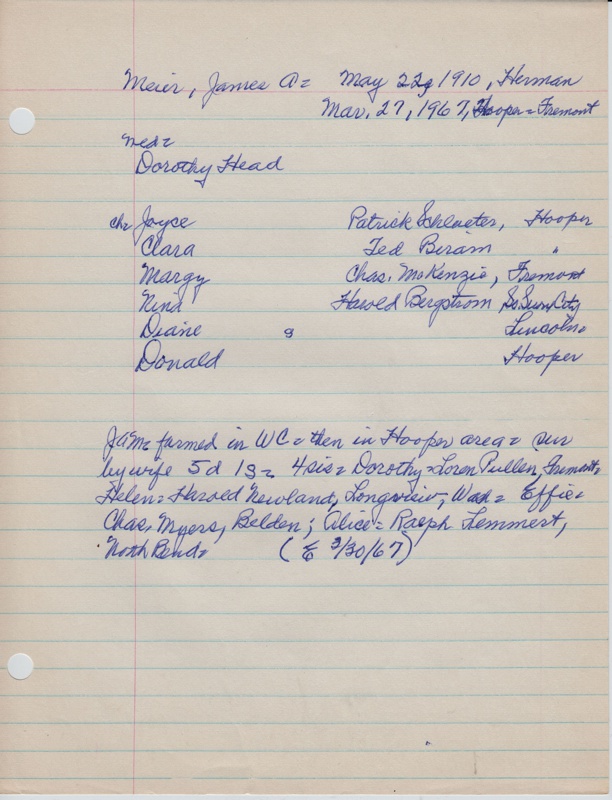 Meier, James A = May 22, 1910, Herman
Mar. 27, 1967, Hooper = Fremont
med =
Dorothy Head
chr Joyce Patrick Schlueter, Hooper
Clara Ted Beram "
Margy Chas. McKenzie, Fremont
Nina Harold Bergstrom So Sioux City
Diane s Lincoln =
Donald Hooper
JAM = farmed in WC = then in Hooper area = sur
by wife 5 d 1 s = 4 sis = Dorothy = Loren Pullen, Fremont =
Helen = Harold Newland, Longview, Wash = Effie =
Chas. Myers, Belden; Alice = Ralph Lemmert,
North Bend = (E 3/30/67)